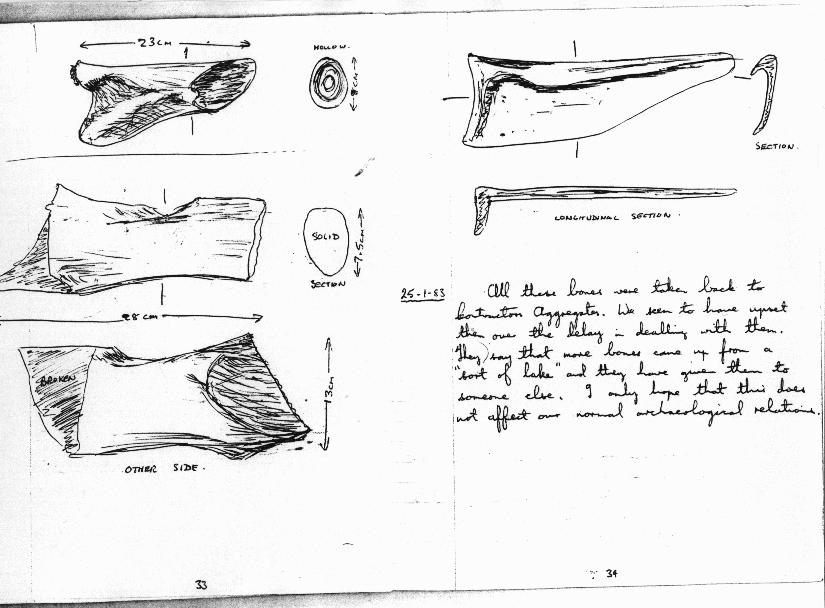 23CM
HOLLOW.
8CM
SOLID
SECTION
7.5CM
28CM
BROKEN
13CM
OTHER SIDE.
33
SECTION.
LONGITUDINAL SECTION.
25-1-83
All these bones were taken back to
Aggregates. We seem to have upset
them over the delay in dealing with them.
They say that more bones came up from a
"sort of lake" and they have given them to
someone else. I only hope that this does
not affect our normal archaeological relations.
34